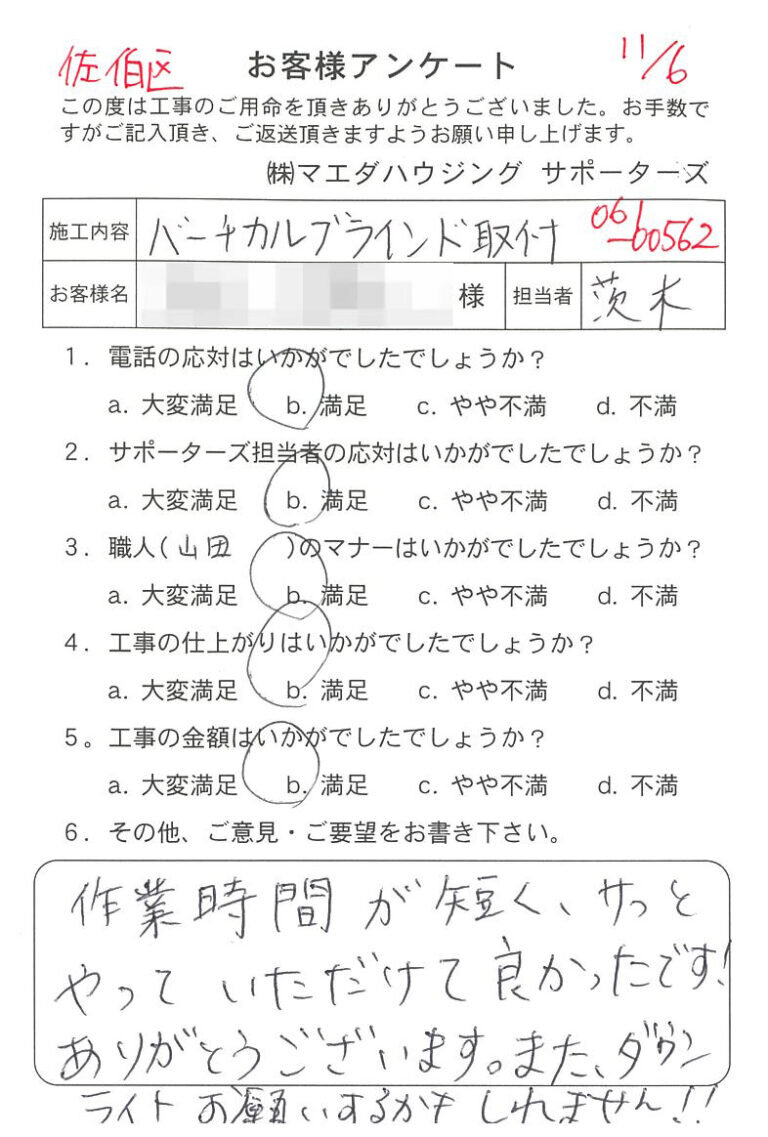 佐伯区 お客様アンケート 11/6
この度は工事のご用命を頂きありがとうございました。お手数で
すがご記入頂き、ご返送頂きますようお願い申し上げます。
㈱マエダハウジング サポーターズ
施工内容 バーチカルブラインド取付 061-00562
お客様名 様 担当者 茨木
1. 電話の応対はいかがでしたでしょうか？
a. 大変満足 b. 満足 c. やや不満 d. 不満
2. サポーターズ担当者の応対はいかがでしたでしょうか？
a. 大変満足 b. 満足 c. やや不満 d. 不満
3. 職人(山田 )のマナーはいかがでしたでしょうか？
a. 大変満足 b. 満足 c. やや不満 d. 不満
4. 工事の仕上がりはいかがでしたでしょうか？
a. 大変満足 b. 満足 c. やや不満 d. 不満
5。工事の金額はいかがでしたでしょうか？
a. 大変満足 b. 満足 c. やや不満 d. 不満
6. その他、ご意見・ご要望をお書き下さい。
作業時間が短く、サっと
やっていただけて良かったです!
ありがとうございます。また、ダウン
ライトお願いするかもしれません!!